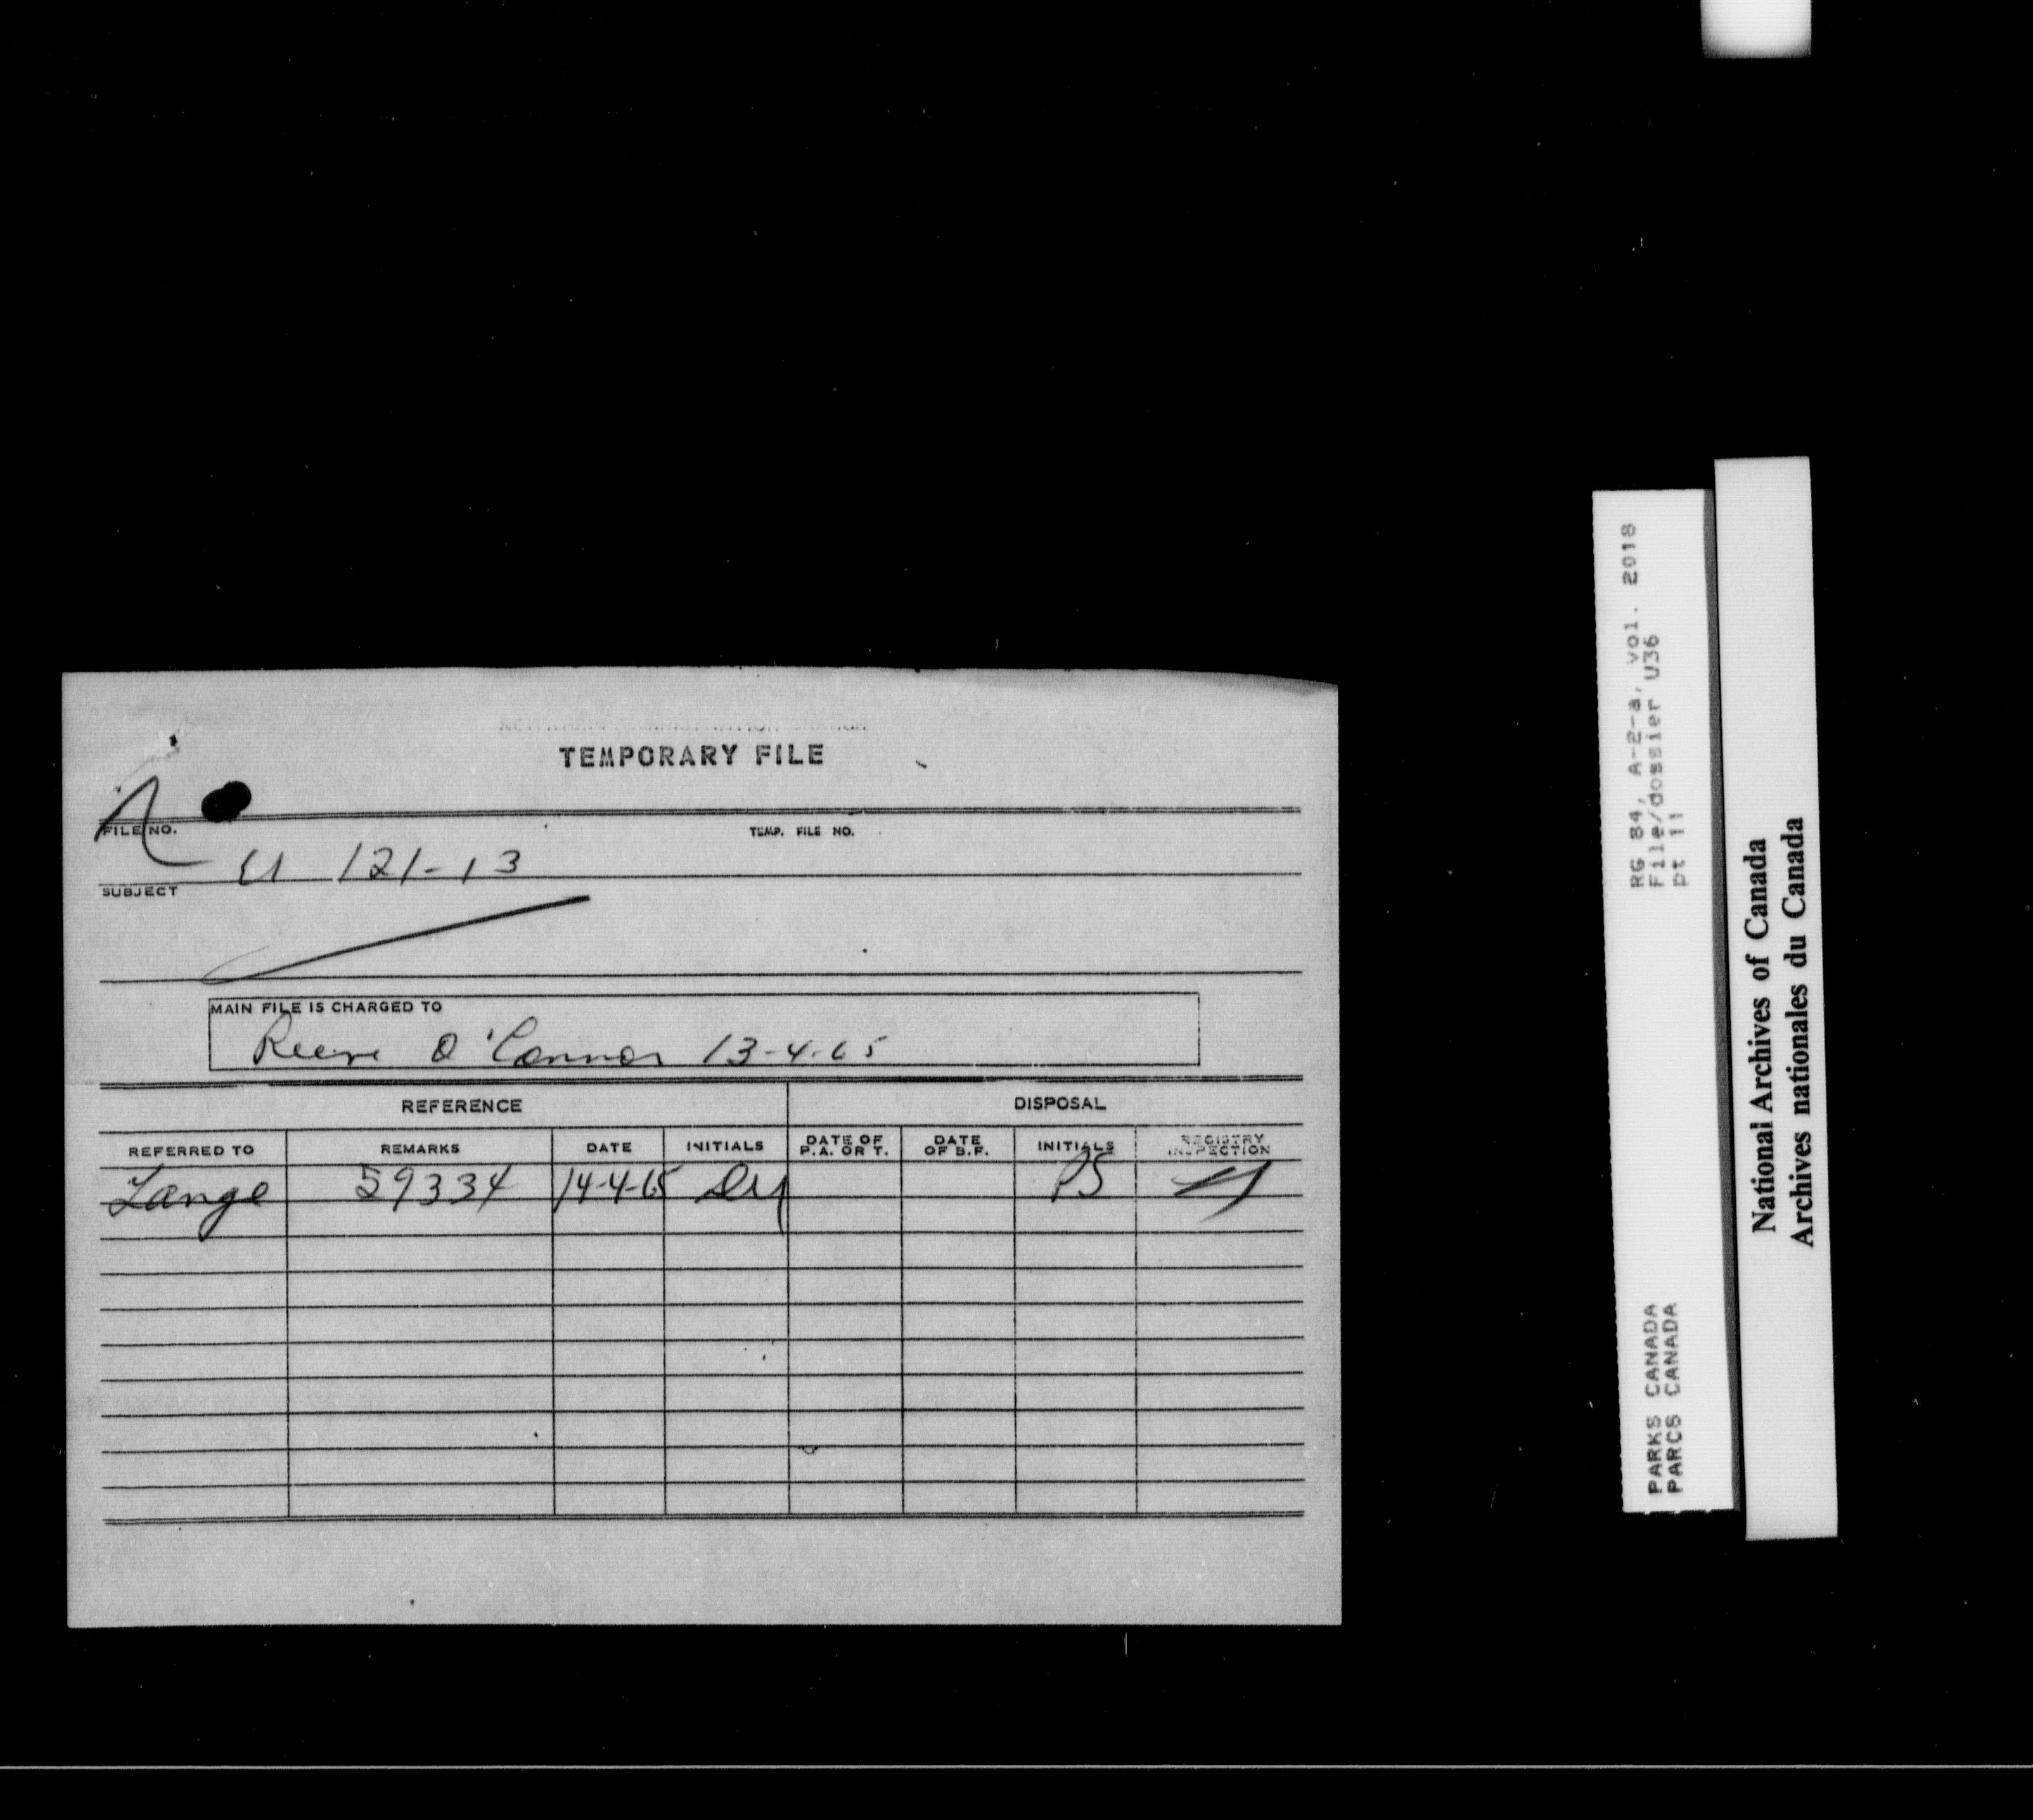 TEMPORARY FILE
FILE NO.
TEMP. FILE NO.
U 121-13
SUBJECT
MAIN FILE IS CHARGED TO
O'Connor 13-4-65
REFERENCE
DISPOSAL
REFERRED TO
REMARKS
DATE
INITIALS
DATE OF P.A. OR T.
DATE OF B.F.
INITIALS
REGISTRY INSPECTION
Lange 59334 14-4-65 PS
RG 84, A-2-a, vol. 2018
File/dossier U36
pt 11
PARKS CANADA
PARCS CANADA
National Archives of Canada
Archives nationales du Canada